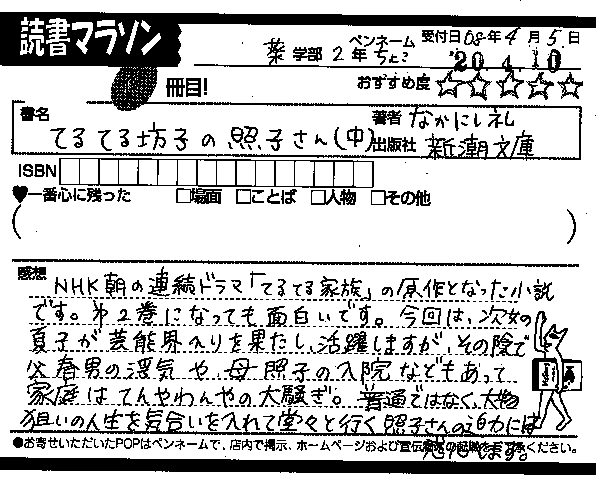 読書マラソン
薬 学部 2 年 ペンネーム ちょこ 受付日 08年 4 月 5 日
20 4. 10
冊目! おすすめ度 ☆☆☆☆☆
書名 てるてる坊子の照子さん(中)
著者 なかにし礼
出版社 新潮文庫
ISBN
♥一番心に残った □場面 □ことば □人物 □その他
( )
感想
NHK朝の連続ドラマ「てるてる家族」の原作となった小説
です。第2巻になっても面白いです。今回は、次女の
夏子が芸能界入りを果たし、活躍しますが、その陰で
父春男の浮気や、母照子の入院などもあって
家庭はてんやわんやの大騒ぎ。普通ではなく、大物
狙いの人生を気合いを入れて堂々と行く照子さんの迫力には
ます。
●お寄せいただいたPOPはペンネームで、店内で掲示、ホームページおよび宣伝 ください。